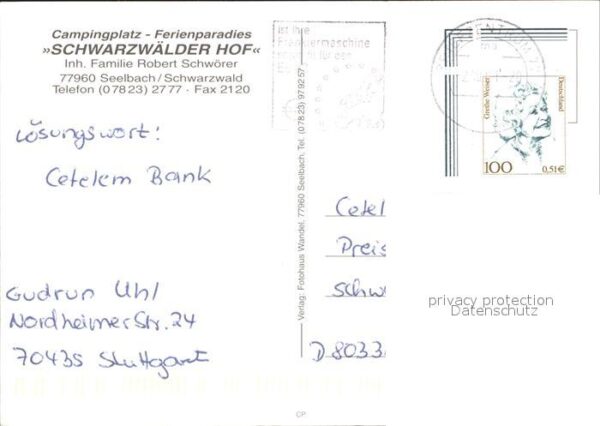 Campingplatz - Ferienparadies
»SCHWARZWÄLDER HOF«
Inh. Familie Robert Schwörer
77960 Seelbach/Schwarzwald
Telefon (0 78 23) 27 77 · Fax 21 20
Lösungswort:
Cetelem Bank
Gudrun Uhl
Nordheimer Str. 24
70435 Stuttgart
Verlag: Fotohaus Wandel, 77960 Seelbach, Tel. (0 78 23) 97 92 57
ist Ihre
Frankiermaschine
für den
Grethe Weiser
Deutschland
100
0,51€
Cetel
Preis
Schw
D 8033
privacy protection
Datenschutz
CP